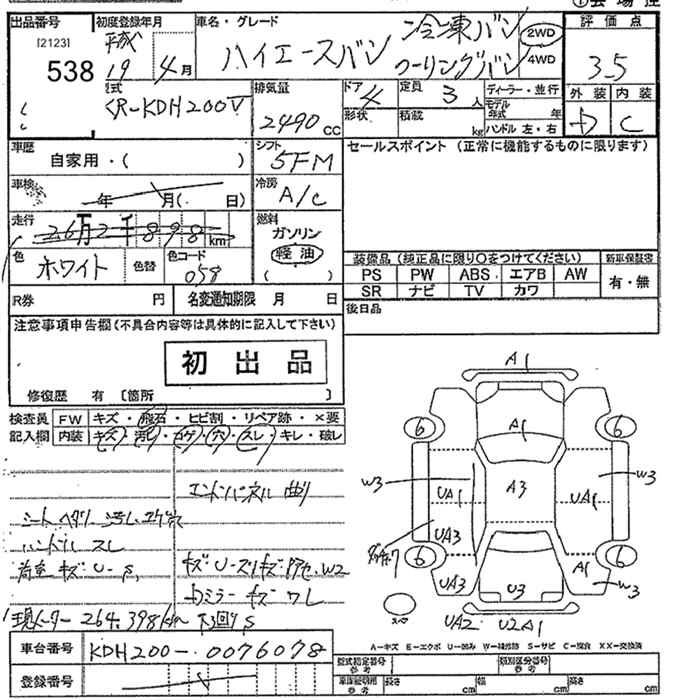 出品番号 初度登録年月 車名・グレード 評価点
[2123] 平成 ハイエースバン 冷凍バン 2WD
538 19 4月 クーリングバン 4WD 3.5
型式 排気量 ドア 4 定員 3人 ディーラー・並行 外装 内装
KR-KDH200V 2490cc 形状 積載 kg モデル年式 年 D C
ハンドル 左・右
車歴 シフト セールスポイント (正常に機能するものに限ります)
自家用・( ) 5FM
車検 年 月(. 日) 冷房
A/C
走行 26万2千898km 燃料
ガソリン
色 ホワイト 色替 色コード 058 軽油
( )
装備品 (純正品に限り○をつけてください) 新車保証書
PS PW ABS エアB AW 有・無
SR ナビ TV カワ
R券 円 名変通知期限 月 日 後日品
注意事項申告欄(不具合内容等は具体的に記入して下さい)
初出品
修復歴 有 〔箇所 〕
検査員 FW キズ・飛石・ヒビ割・リペア跡・×要
記入欄 内装 キズ・汚レ・コゲ・穴・スレ・キレ・破レ
エンドパネル 曲り
シート ヘタリ
ハンドル スレ
荷室 キズ
キズ
カミラー キズ ワレ
現メーター 264,398km
車台番号 KDH200-0076078
登録番号
A1
6 A1 6
W3 UA1 A3 UA1 W3
UA3
6 6
UA3 U3 A1 W3
スペア UA2 U2A1
A-キズ E-エクボ U-凹み W-補修跡 S-サビ C-腐食 XX-交換済
型式指定番号 参考 類別区分番号 参考
車庫証明用 参考 長さ cm 幅 cm 高さ cm